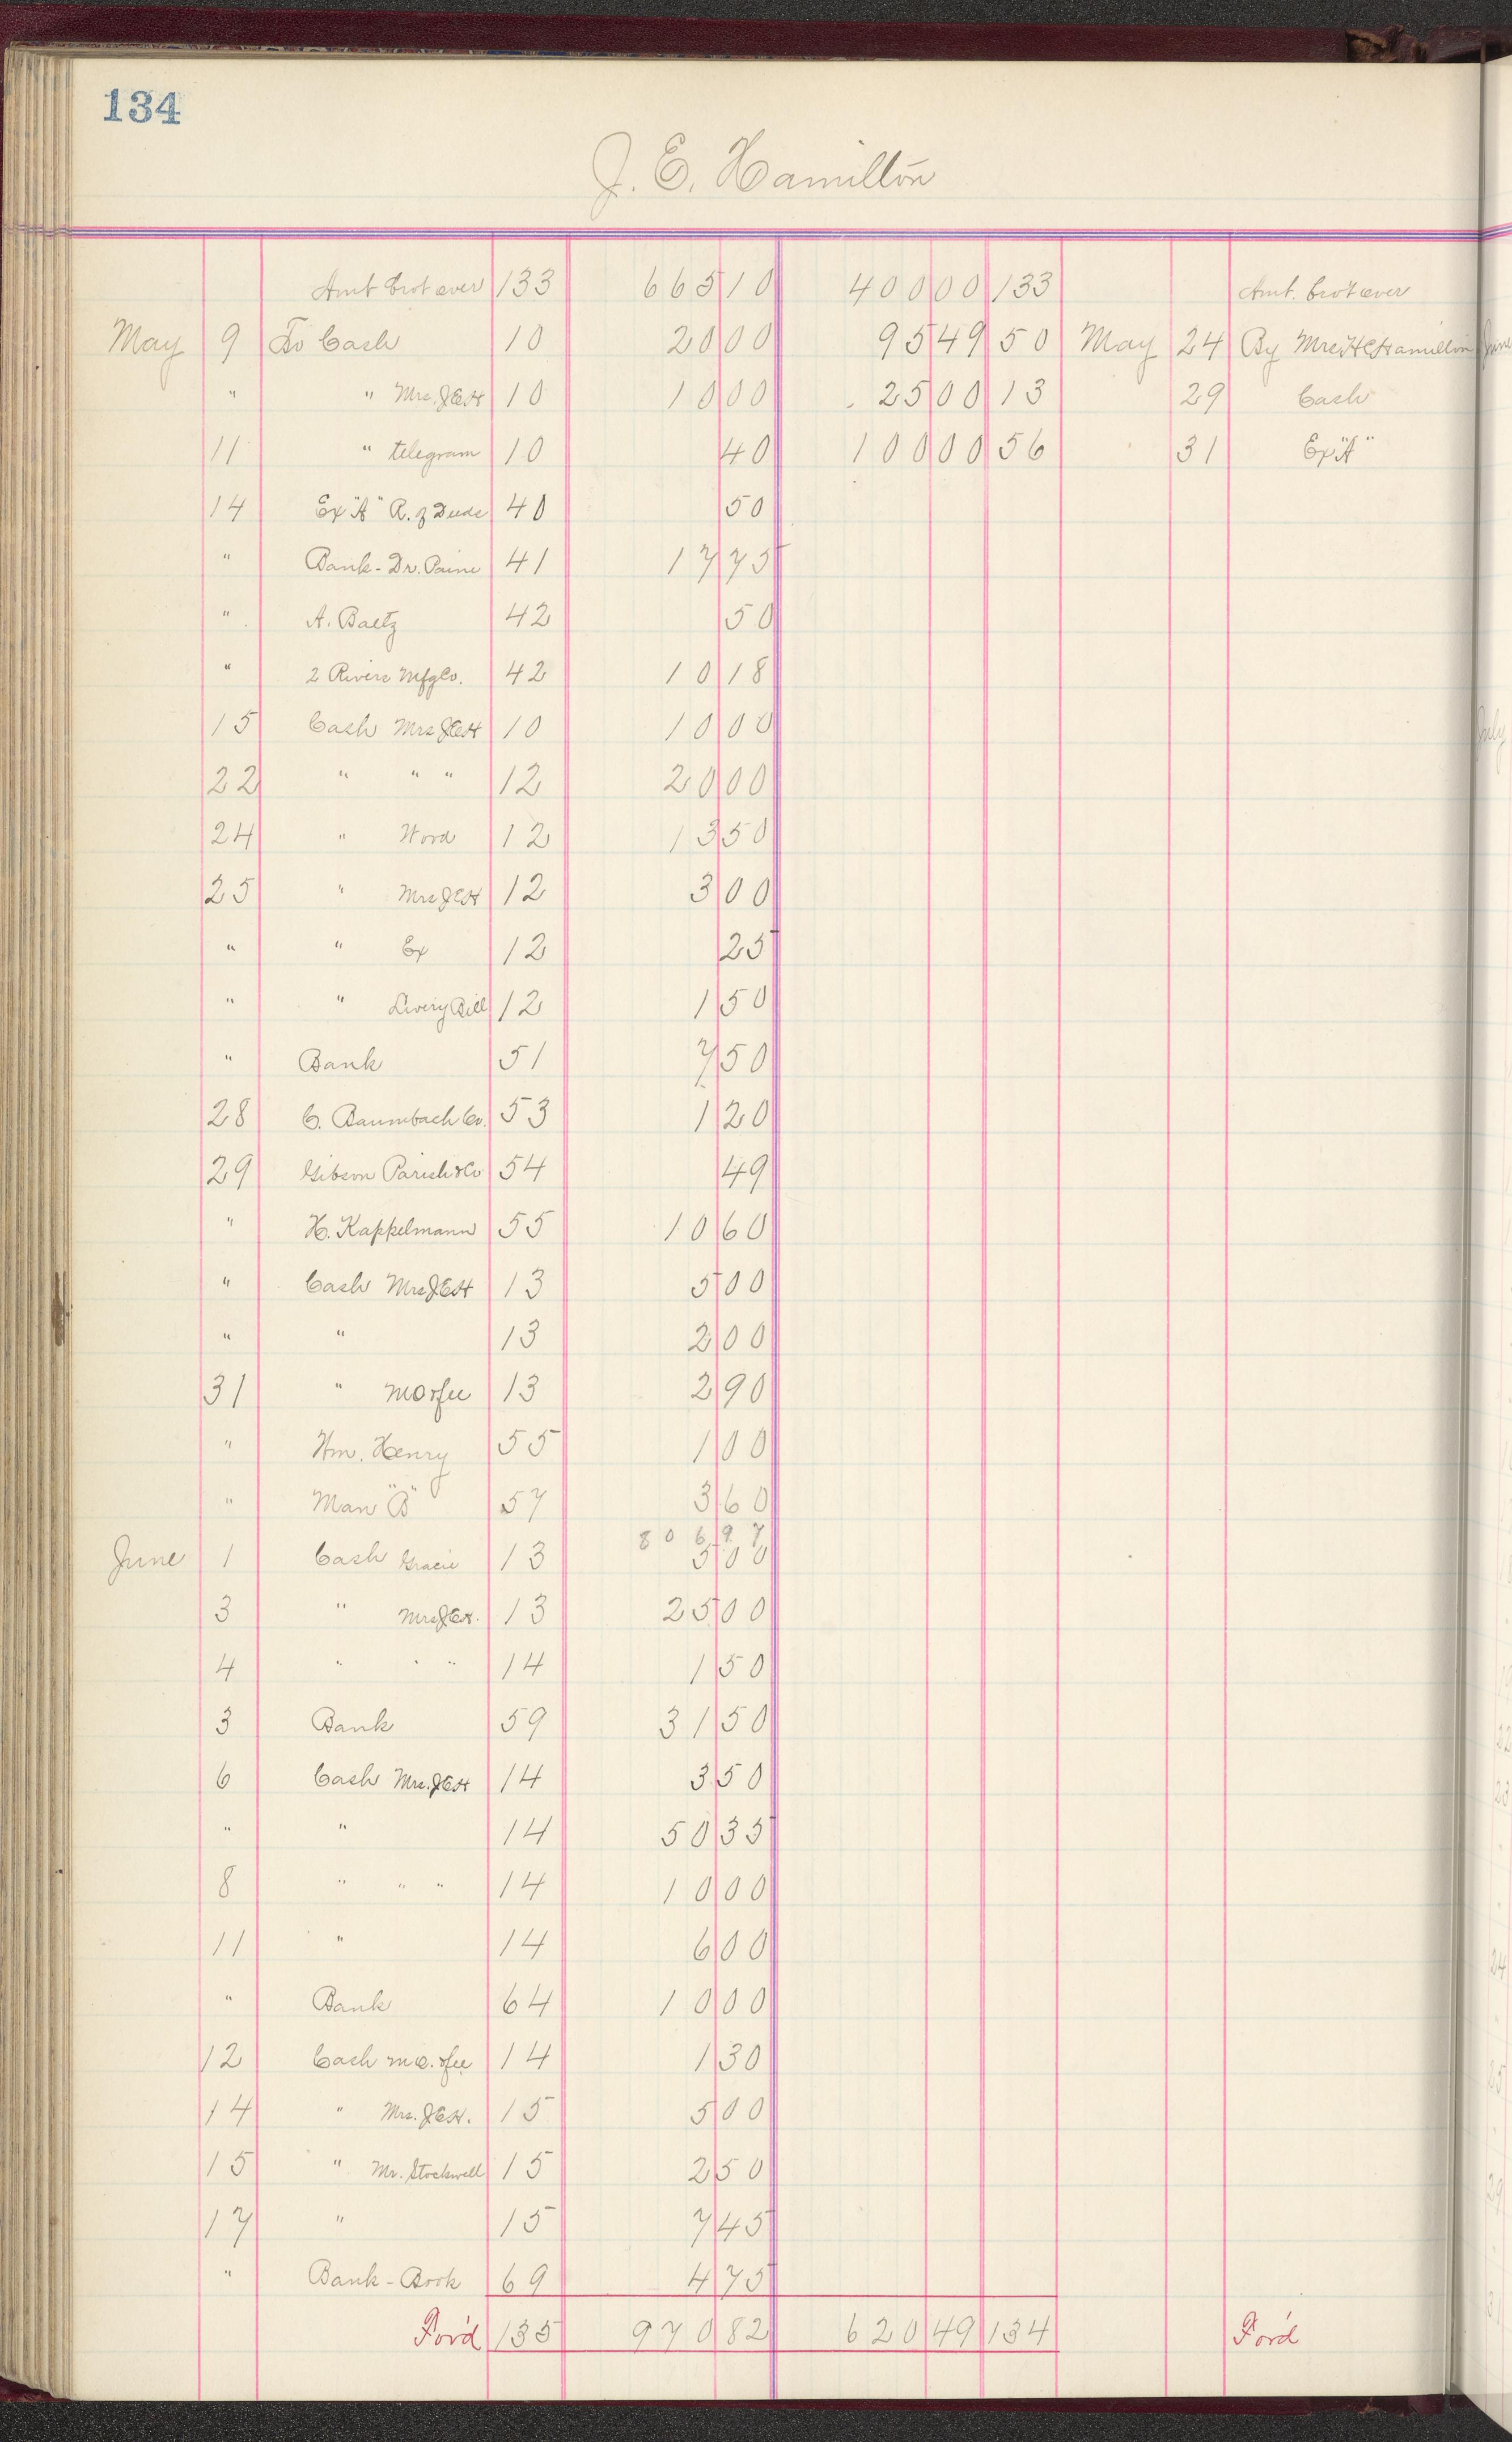 134
J. E. Hamilton
Amt brot over 133 665 10 400 00 133 Amt. brot over
May 9 To Cash 10 20 00 95 49 50 May 24 By Mrs H C Hamilton
" " Mrs. JEH 10 10 00 25 00 13 29 Cash
11 " telegram 10 40 100 00 56 31 Ex "A"
14 Ex "A" R. of Deeds 40 50
" Bank - Dr. Paine 41 17 75
" A. Baetz 42 50
" 2 Rivers Mfg Co. 42 10 18
15 Cash Mrs JEH 10 10 00
22 " " " 12 20 00
24 " Wood 12 13 50
25 " Mrs JEH 12 3 00
" " Ex 12 25
" " Livery Bill 12 1 50
" Bank 51 7 50
28 C. Baumbach Co. 53 1 20
29 Gibson Parish & Co 54 49
" H. Kappelmann 55 10 60
" Cash Mrs JEH 13 5 00
" " 13 2 00
31 " 13 2 90
" Wm. Henry 55 1 00
" Man "B" 57 3 60
806 97
June 1 Cash Gracie 13 5 00
3 " Mrs JEH. 13 25 00
4 " " " 14 1 50
3 Bank 59 31 50
6 Cash Mrs. JEH 14 3 50
" " 14 50 35
8 " " " 14 10 00
11 " 14 6 00
" Bank 64 10 00
12 Cash 14 1 30
14 " Mrs. JEH. 15 5 00
15 " Mr. Stockwell 15 2 50
17 " 15 7 45
" Bank - Book 69 4 75
For'd 135 970 82 620 49 134 For'd